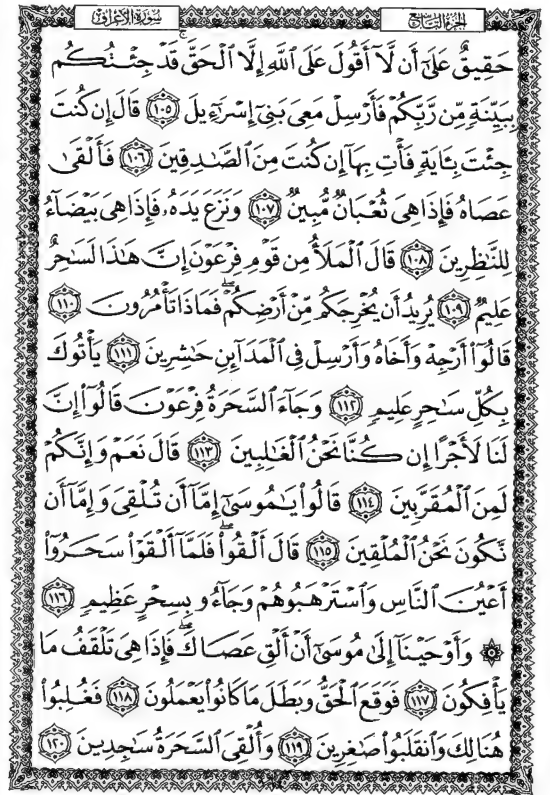 الجزء التاسع سورة الأعراف
حَقِيقٌ عَلَىٰٓ أَن لَّآ أَقُولَ عَلَى ٱللَّهِ إِلَّا ٱلْحَقَّ قَدْ جِئْتُكُم
بِبَيِّنَةٍ مِّن رَّبِّكُمْ فَأَرْسِلْ مَعِىَ بَنِىٓ إِسْرَٰٓءِيلَ ١٠٥ قَالَ إِن كُنتَ
جِئْتَ بِـَٔايَةٍ فَأْتِ بِهَآ إِن كُنتَ مِنَ ٱلصَّـٰدِقِينَ ١٠٦ فَأَلْقَىٰ
عَصَاهُ فَإِذَا هِىَ ثُعْبَانٌ مُّبِينٌ ١٠٧ وَنَزَعَ يَدَهُۥ فَإِذَا هِىَ بَيْضَآءُ
لِلنَّـٰظِرِينَ ١٠٨ قَالَ ٱلْمَلَأُ مِن قَوْمِ فِرْعَوْنَ إِنَّ هَـٰذَا لَسَـٰحِرٌ
عَلِيمٌ ١٠٩ يُرِيدُ أَن يُخْرِجَكُم مِّنْ أَرْضِكُمْ ۖ فَمَاذَا تَأْمُرُونَ ١١٠
قَالُوٓا۟ أَرْجِهْ وَأَخَاهُ وَأَرْسِلْ فِى ٱلْمَدَآئِنِ حَـٰشِرِينَ ١١١ يَأْتُوكَ
بِكُلِّ سَـٰحِرٍ عَلِيمٍ ١١٢ وَجَآءَ ٱلسَّحَرَةُ فِرْعَوْنَ قَالُوٓا۟ إِنَّ
لَنَا لَأَجْرًا إِن كُنَّا نَحْنُ ٱلْغَـٰلِبِينَ ١١٣ قَالَ نَعَمْ وَإِنَّكُمْ
لَمِنَ ٱلْمُقَرَّبِينَ ١١٤ قَالُوا۟ يَـٰمُوسَىٰٓ إِمَّآ أَن تُلْقِىَ وَإِمَّآ أَن
نَّكُونَ نَحْنُ ٱلْمُلْقِينَ ١١٥ قَالَ أَلْقُوا۟ ۖ فَلَمَّآ أَلْقَوْا۟ سَحَرُوٓا۟
أَعْيُنَ ٱلنَّاسِ وَٱسْتَرْهَبُوهُمْ وَجَآءُو بِسِحْرٍ عَظِيمٍ ١١٦
۞ وَأَوْحَيْنَآ إِلَىٰ مُوسَىٰٓ أَنْ أَلْقِ عَصَاكَ ۖ فَإِذَا هِىَ تَلْقَفُ مَا
يَأْفِكُونَ ١١٧ فَوَقَعَ ٱلْحَقُّ وَبَطَلَ مَا كَانُوا۟ يَعْمَلُونَ ١١٨ فَغُلِبُوا۟
هُنَالِكَ وَٱنقَلَبُوا۟ صَـٰغِرِينَ ١١٩ وَأُلْقِىَ ٱلسَّحَرَةُ سَـٰجِدِينَ ١٢٠